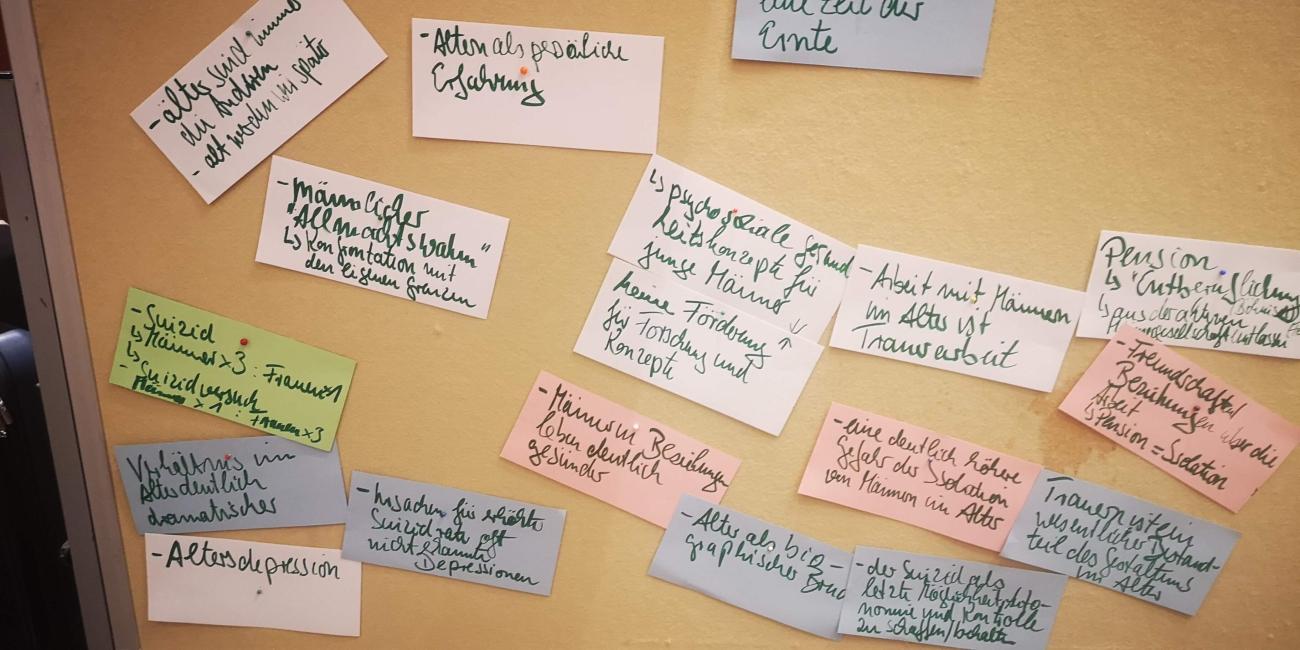 - älter sind immer
die Anderen
- alt werden wir später
- Altern als persönliche
Erfahrung
eine Zeit der
Ernte
- Männlicher
"Allmachtswahn"
↳ Konfrontation mit
den eigenen Grenzen
↳ psychosoziale Gesund
heitskonzepte für
junge Männer
keine Förderung
für Forschung und
Konzepte
- Arbeit mit Männern
im Alter ist
Trauerarbeit
Pension
↳ "Entberuflichung
↳ aus der aktiven
- Suizid
↳ Männer x3 : Frauen x1
↳ Suizidversuch
Männer x1 : Frauen x3
Verhältnis im
Alter deutlich
dramatischer
- Altersdepression
- Ursachen für erhöhte
Suizidrate oft
nicht erkannte
Depressionen
- Männer in Beziehungen
leben deutlich
gesünder
- eine deutlich höhere
Gefahr der Isolation
von Männern im Alter
- Freundschaften/
Beziehungen über die
Arbeit
↳ Pension = Isolation
- Alter als bio-
graphischer Bruch
- der Suizid als
letzte Möglichkeit Auto-
nomie und Kontrolle
zu schaffen/behalten
Trauern ist ein
wesentlicher Bestand-
teil des Gestaltens
im Alter